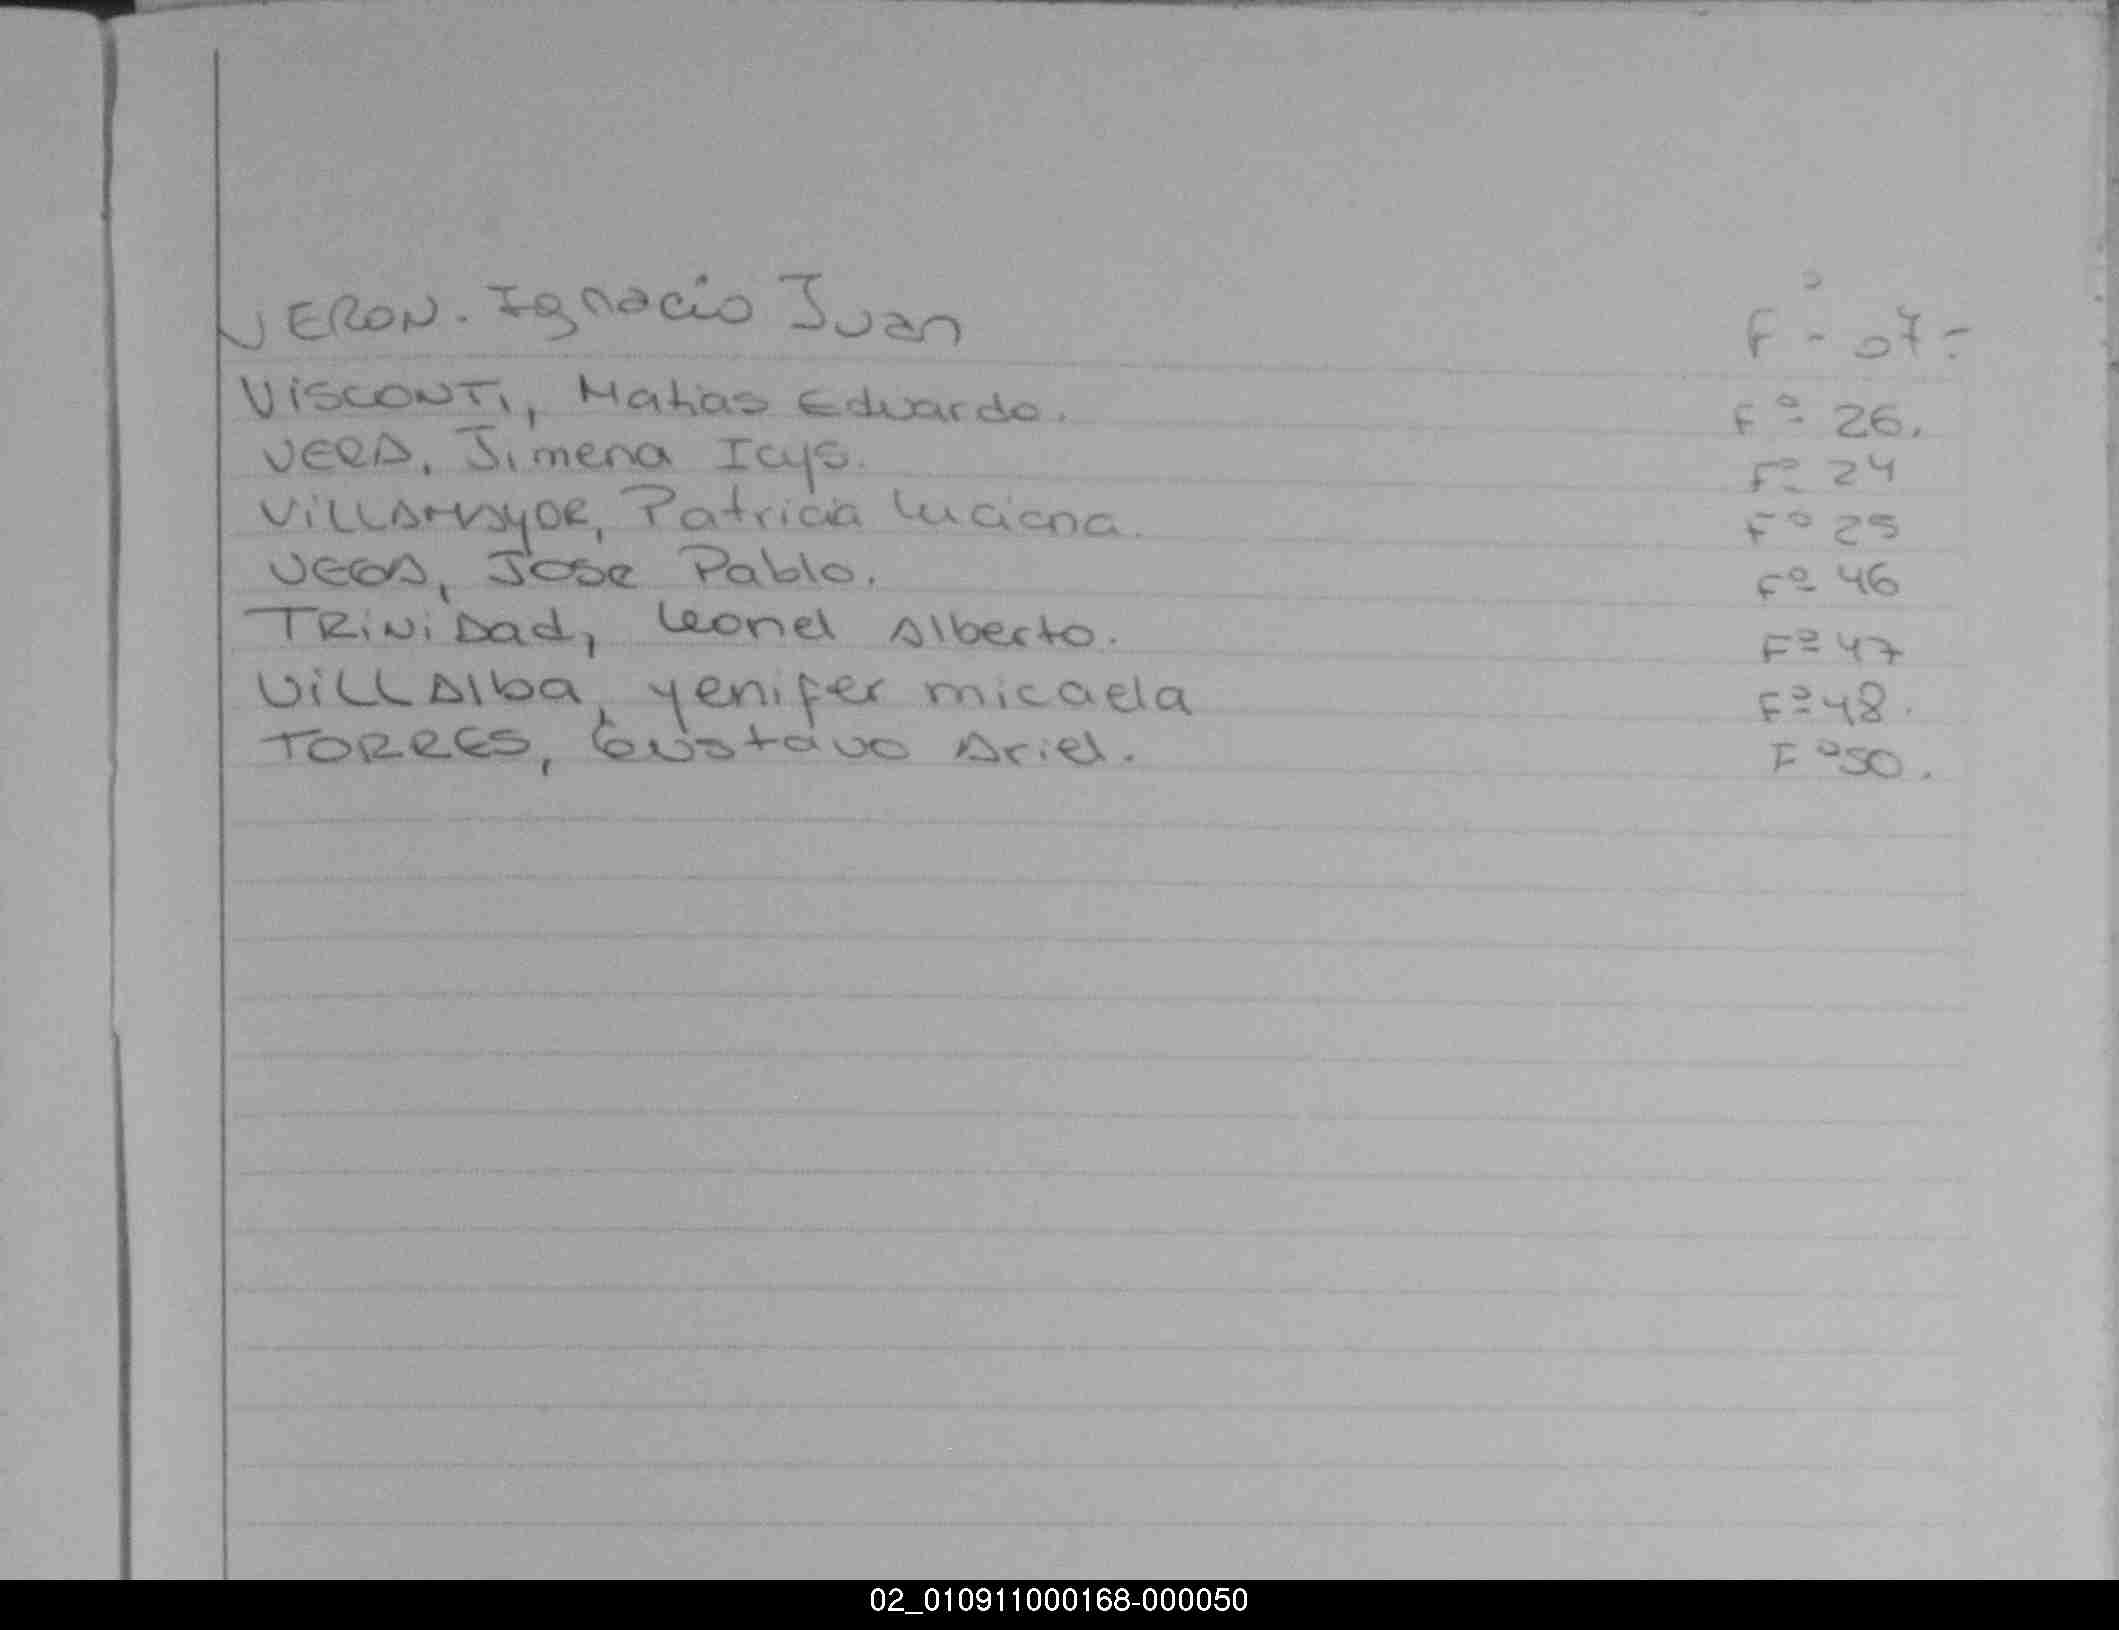 VERON. Ignacio Juan F° - 07 -
VISCONTI, Matias Eduardo. Fº 26.
VERA, Jimena Icys. Fº 24
VILLAMAYOR, Patricia Luciana. Fº 25
VEGA, Jose Pablo. Fº 46
TRINIDad, Leonel Alberto. Fº 47
VILLAlba, yenifer micaela Fº 48.
TORRES, Gustavo Ariel. Fº 50.
02_010911000168-000050